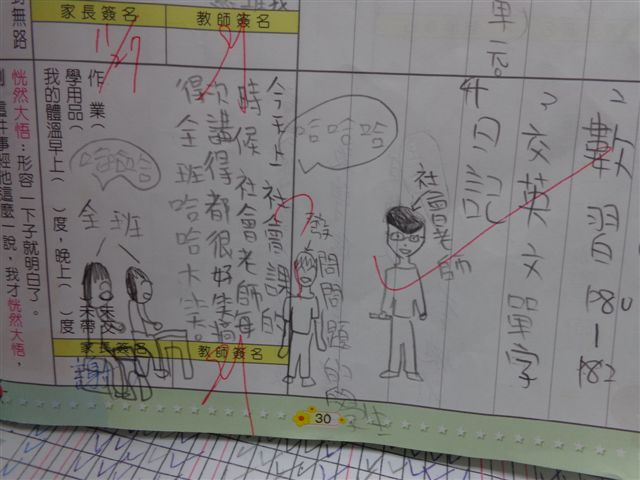 單元。
2 數習P180-182
3 交英文單字
4 日記
社會老師
哈哈哈
發問問題的學生
今天上社會課的
時候社會老師每
次講得都很好笑搞
得全班哈哈大笑。
哈哈哈
全班
家長簽名
教師簽名
11/27
作業(
學用品(
我的體溫早上( )度,晚上( )度
未交
未帶
家長簽名
教師簽名
謝
恍然大悟:形容一下子就明白了。
這件事經他這麼一說,我才恍然大悟,
30